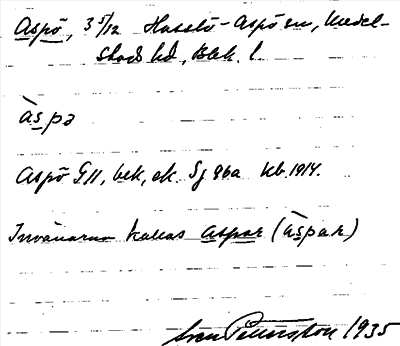 Aspö, 3 5/12 Hasslö-Aspö sn, Medel-
stads hd, Blek. l.
àspə
Aspö G11, bek, ek. Sj 86a Kb. 1914.
Invånarna kallas aspar (àspar)
Sven Petersson 1935